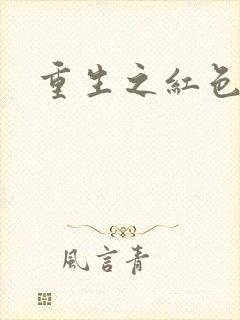 重生之紅色
風言青